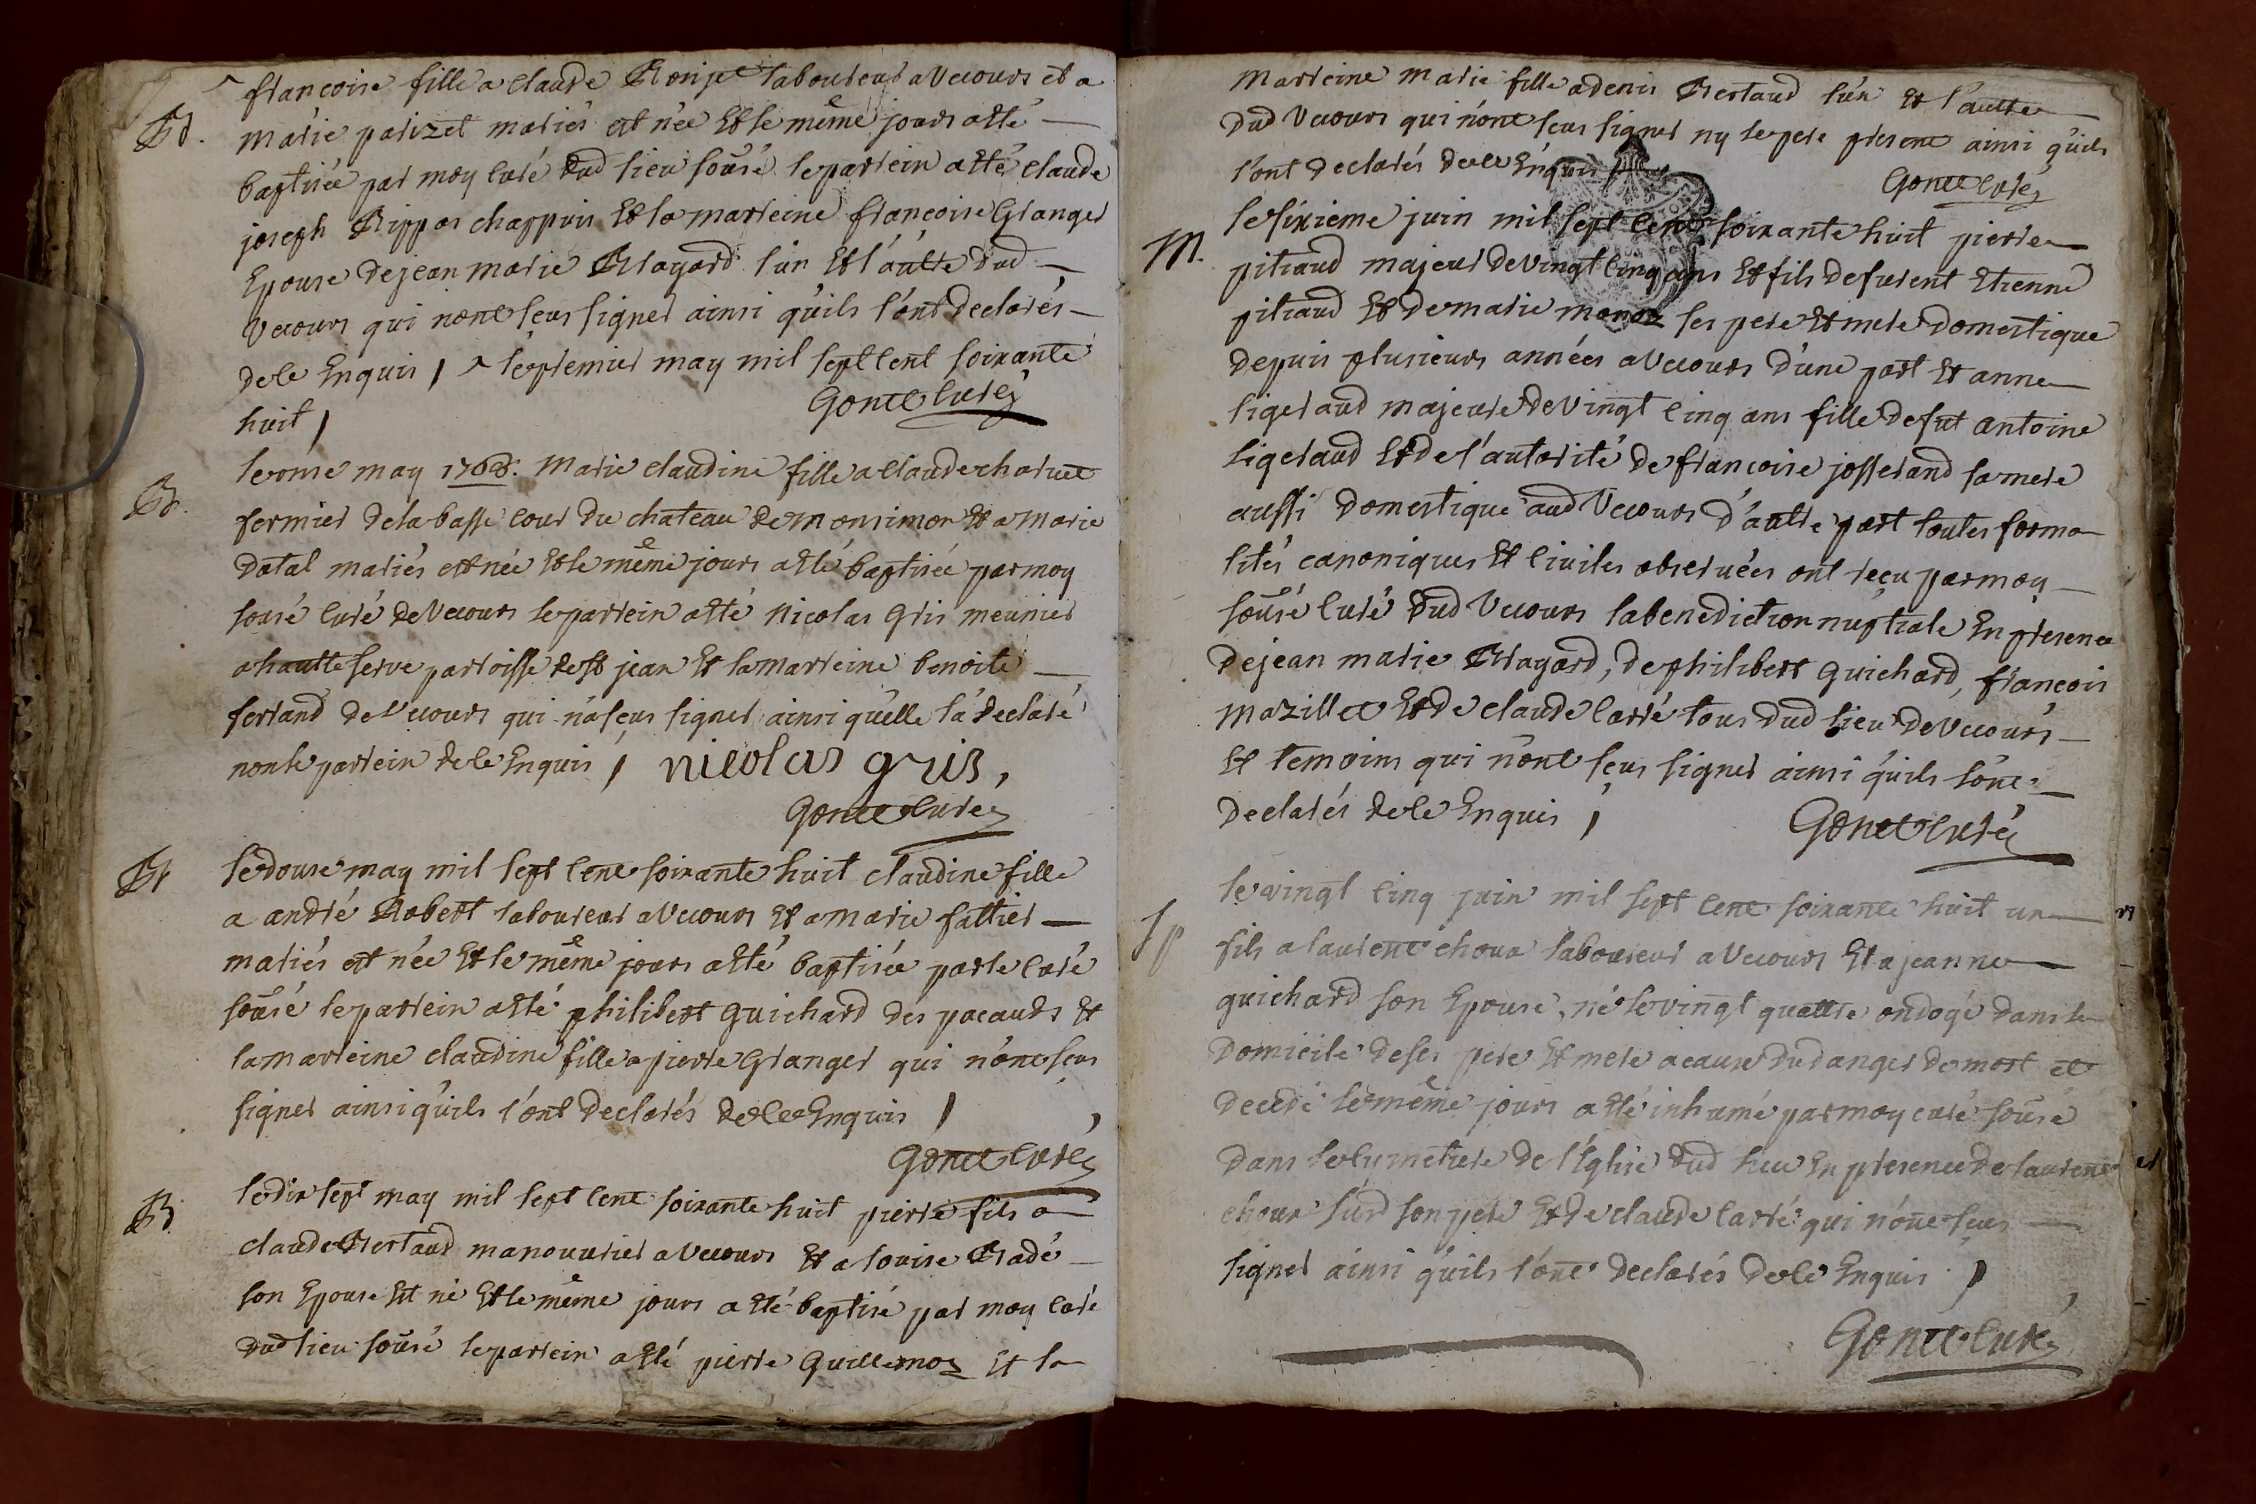 ^ francoise fille a claude Bonjet laboureur a Vecours et a
Bt. marie parizet mariés est née Et le même jours a Eté
baptisée par moy curé dud lieu sousé le parrein a Eté claude
joseph Rippes chappuis Et la marreine francoise Granger
Epouse de jean marie Bragard l'un Et l'autre dud
Vecours qui n'ont sçus signer ainsi qu'ils l'ont declarés
de ce Enquis / ^ le premier may mil sept cent soixante
huit / Gonce curé
le onse may 1768. Marie claudine fille a claude charvet
Bt. fermier de la basse cour du chateau de monsimon Et a marie
datal mariés est née Et le même jours a Eté baptisée par moy
sousé curé de Vecours le parrein a Eté Nicolas Gris meunier
a hautteserve parroisse de St jean Et la marreine benoite
ferrand de Vecours qui n'a sçus signer ainsi qu'elle l'a declaré
non le parrein de ce Enquis / nicolas gris,
Gonce curé
Bt le douse may mil sept cent soixante huit claudine fille
a andré Robert laboureur a Vecours Et a marie fattier
mariés est née Et le même jours a Eté baptisée par le curé
sousé le parrein a Eté philibert guichard des pacauds Et
la marreine claudine fille a pierre Granger qui n'ont sçus
signer ainsi qu'ils l'ont declarés de ce Enquis /
Gonce curé
Bt le dix sept may mil sept cent soixante huit pierre fils a
claude Bertaud manouvrier a Vecours Et a louise Bradé
son Epouse Est né Et le même jours a Eté baptisé par moy curé
dud lieu sousé le parrein a Eté pierre Guillemoz Et la
marreine marie fille a denis Bertaud l'un Et l'autre
dud Vecours qui n'ont sçus signer ny le pere present ainsi qu'ils
l'ont declarés de ce Enquis
Gonce curé
M. le sixieme juin mil sept cent soixante huit pierre
pitraud majeur de vingt cinq ans Et fils de furent Etienne
pitraud Et de marie monoz ses pere Et mere domestique
depuis plusieurs années a Vecours d'une part Et anne
ligeraud majeure de vingt cinq ans fille de fut antoine
ligeraud Et de l'autorité de francoise josserand sa mere
aussi domestique aud Vecours d'autre part toutes forma
lités canoniques Et civiles observées ont recu par moy
sousé curé dud Vecours la benediction nuptiale En presence
de jean marie Bragard, de philibert guichard, francois
mazillet Et de claude carré tous dud lieu de Vecours
Et temoins qui n'ont sçus signer ainsi qu'ils l'ont
declarés de ce Enquis /
Gonce curé
le vingt cinq juin mil sept cent soixante huit un
Sp fils a laurent choux laboureur a Vecours Et a jeanne
guichard son Epouse, né le vingt quattre ondogé dans le
domicile de ses pere Et mere a cause du danger de mort et
decedé le même jours a Eté inhumé par moy curé sousé
dans le cymetiere de l'Eglise dud lieu En presence de laurent
choux surd son pere Et de claude carré qui n'ont sçus
signer ainsi qu'ils l'ont declarés de ce Enquis /
Gonce curé